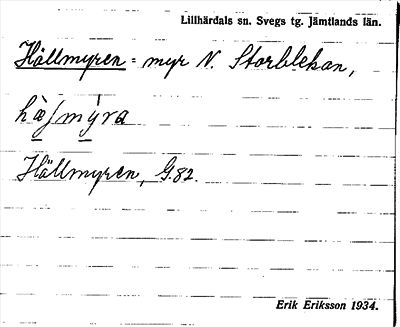 Lillhärdals sn. Svegs tg. Jämtlands län.
Hällmyren = myr N. Storblekan,
hä̀ʃmýra
Hällmyren, G.82.
Erik Eriksson 1934.